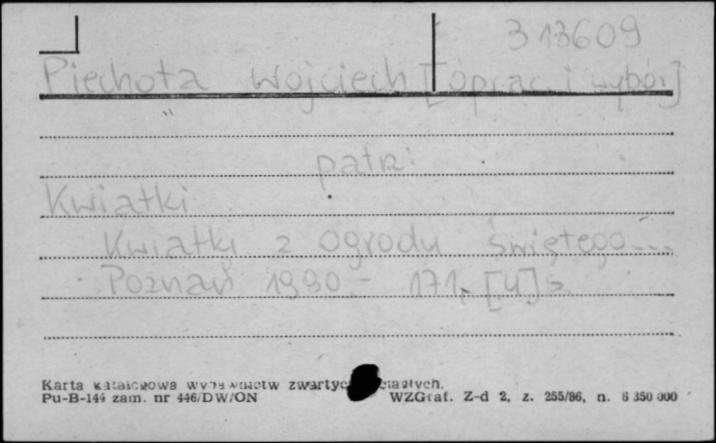 313609
Piechota Wojciech [oprac. i wybór]
patrz:
Kwiatki
Kwiatki z ogrodu świętego...
Poznań 1990 - 171, [4] s.
Karta katalogowa wydawnictw zwartych i ciągłych.
Pu-B-144 zam. nr 446/DW/ON WZGraf. Z-d 2, z. 255/86, n. 6 350 000